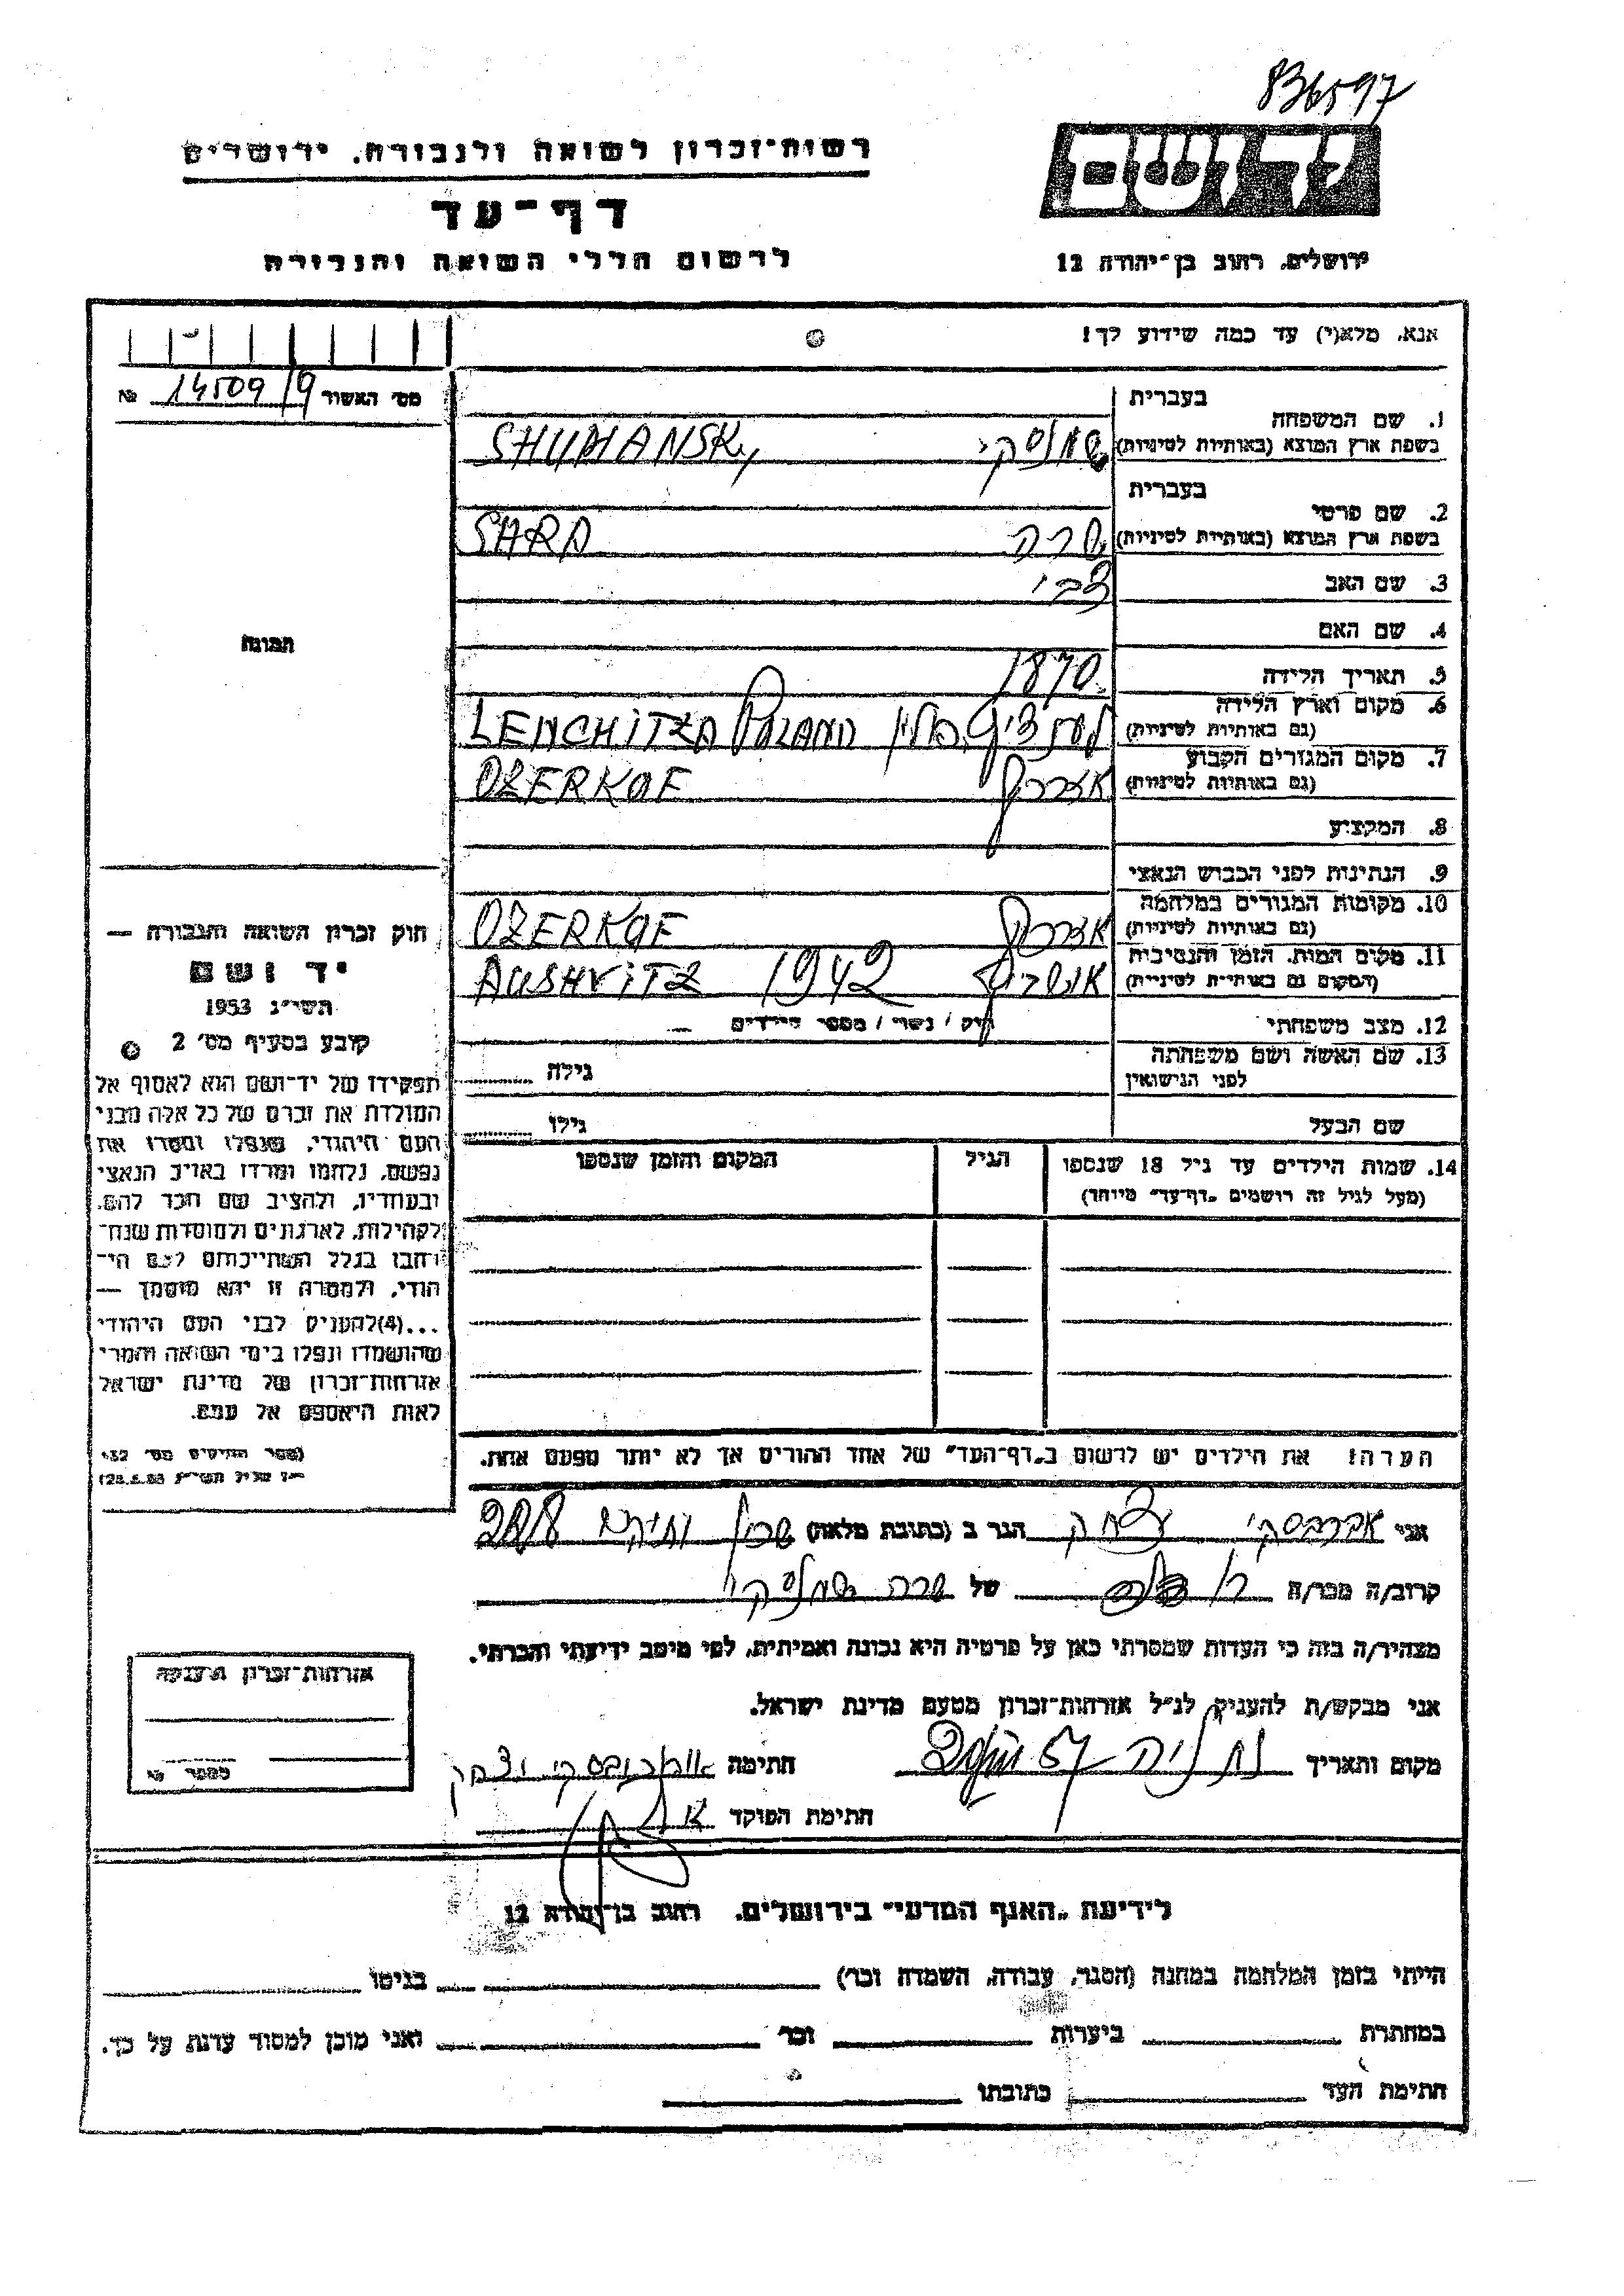 836597
רשות-זכרון לשואה ולגבורה. ירושלים
יד ושם
דף-עד
לרשום חללי השואה והגבורה
ירושלים, רחוב בן-יהודה 12
אנא, מלא(י) עד כמה שידוע לך!
מס' האשור 14509/9 №
בעברית
1. שם המשפחה
בשפת ארץ המוצא (באותיות לטיניות) שמנסקי SHUMANSKy
בעברית
2. שם פרטי
בשפת ארץ המוצא (באותיות לטיניות) שרה SARA
3. שם האב צבי
4. שם האם
תמונה
5. תאריך הלידה 1870
6. מקום וארץ הלידה
(גם באותיות לטיניות) פולין LENCHITZA POLAND
7. מקום המגורים הקבוע
(גם באותיות לטיניות) אוזרקוף OZERKOF
8. המקצוע
9. הנתינות לפני הכבוש הנאצי
10. מקומות המגורים במלחמה
(גם באותיות לטיניות) אוזרקוף OZERKOF
11. מקום המות, הזמן והנסיבות
(המקום גם באותיות לטיניות) אושויץ 1942 AUSHVITZ
12. מצב משפחתי רוק / נשוי / מספר הילדים
13. שם האשה ושם משפחתה
לפני הנישואין גילה
שם הבעל גילו
14. שמות הילדים עד גיל 18 שנספו הגיל המקום והזמן שנספו
(מעל לגיל זה רושמים "דף-עד" מיוחד)
חוק זכרון השואה והגבורה —
יד ושם
תשי"ג 1953
קובע בסעיף מס' 2
תפקידו של יד-ושם הוא לאסוף אל
המולדת את זכרם של כל אלה מבני
העם היהודי, שנפלו ומסרו את
נפשם, נלחמו ומרדו באויב הנאצי
ובעוזריו, ולהציב שם וזכר להם,
לקהילות, לארגונים ולמוסדות שנח-
רבו בגלל השתייכותם לעם הי-
הודי, ולמטרה זו יהא מוסמך —
...(4) להעניק לבני העם היהודי
שהושמדו ונפלו בימי השואה והמרי
אזרחות-זכרון של מדינת ישראל
לאות היאספם אל עמם.
(ספר החוקים מס' 132
הערה! את הילדים יש לרשום ב"דף-העד" של אחד ההורים אך לא יותר מפעם אחת.
אני יצחק הגר ב (כתובת מלאה)
קרוב/ה מכר/ה של שרה שמנסקי
מצהיר/ה בזה כי העדות שמסרתי כאן על פרטיה היא נכונה ואמיתית, לפי מיטב ידיעתי והכרתי.
אני מבקש/ת להעניק לנ"ל אזרחות-זכרון מטעם מדינת ישראל.
מקום ותאריך נתניה חתימה
חתימת הפוקד
אזרחות-זכרון הוענקה
מספר №
לידיעת "האגף המדעי" בירושלים. רחוב בן-יהודה 12
הייתי בזמן המלחמה במחנה (הסגר, עבודה, השמדה וכו') בגיטו
במחתרת ביערות וכו' ואני מוכן למסור עדות על כך.
חתימת העד כתובתו